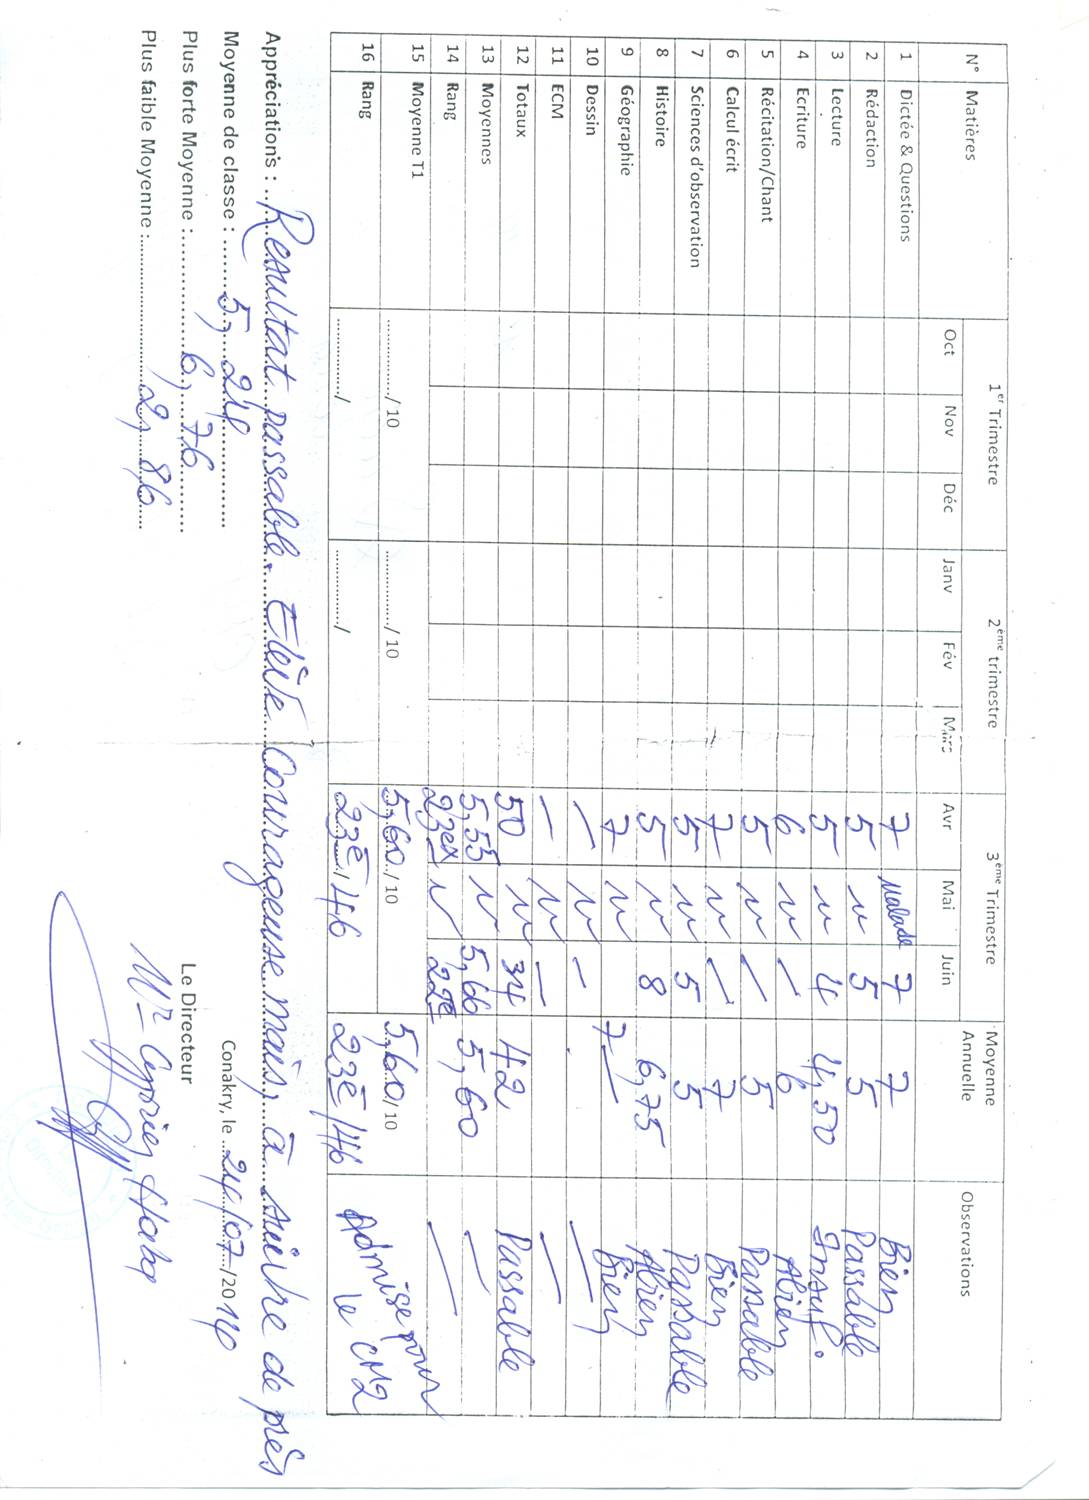 N° Matières 1er Trimestre 2ème trimestre 3ème Trimestre Moyenne Annuelle Observations
Oct Nov Déc Janv Fév Mars Avr Mai Juin
1 Dictée & Questions 7 Malade 7 7 Bien
2 Rédaction 5 5 5 Passable
3 Lecture 5 4 4,50 Insuf.
4 Ecriture 6 6 ABien
5 Récitation/Chant 5 5 Passable
6 Calcul écrit 7 7 Bien
7 Sciences d'observation 5 5 5 Passable
8 Histoire 5 8 6,75 ABien
9 Géographie 7 7 Bien
10 Dessin
11 ECM
12 Totaux 50 34 42 Passable
13 Moyennes 5,55 5,66 5,60
14 Rang 23ex 22e
15 Moyenne T1 ............/ 10 ............/ 10 5,60 / 10 5,60 / 10 Admise pour
16 Rang ............/ ............/ 23è / 46 23è / 46 le CM2
Appréciations : Resultat passable. Elève Courageuse mais, à suivre de près
Moyenne de classe : 5, 24 Conakry, le 24/07/2014
Plus forte Moyenne : 6, 76 Le Directeur
Plus faible Moyenne : 2, 86